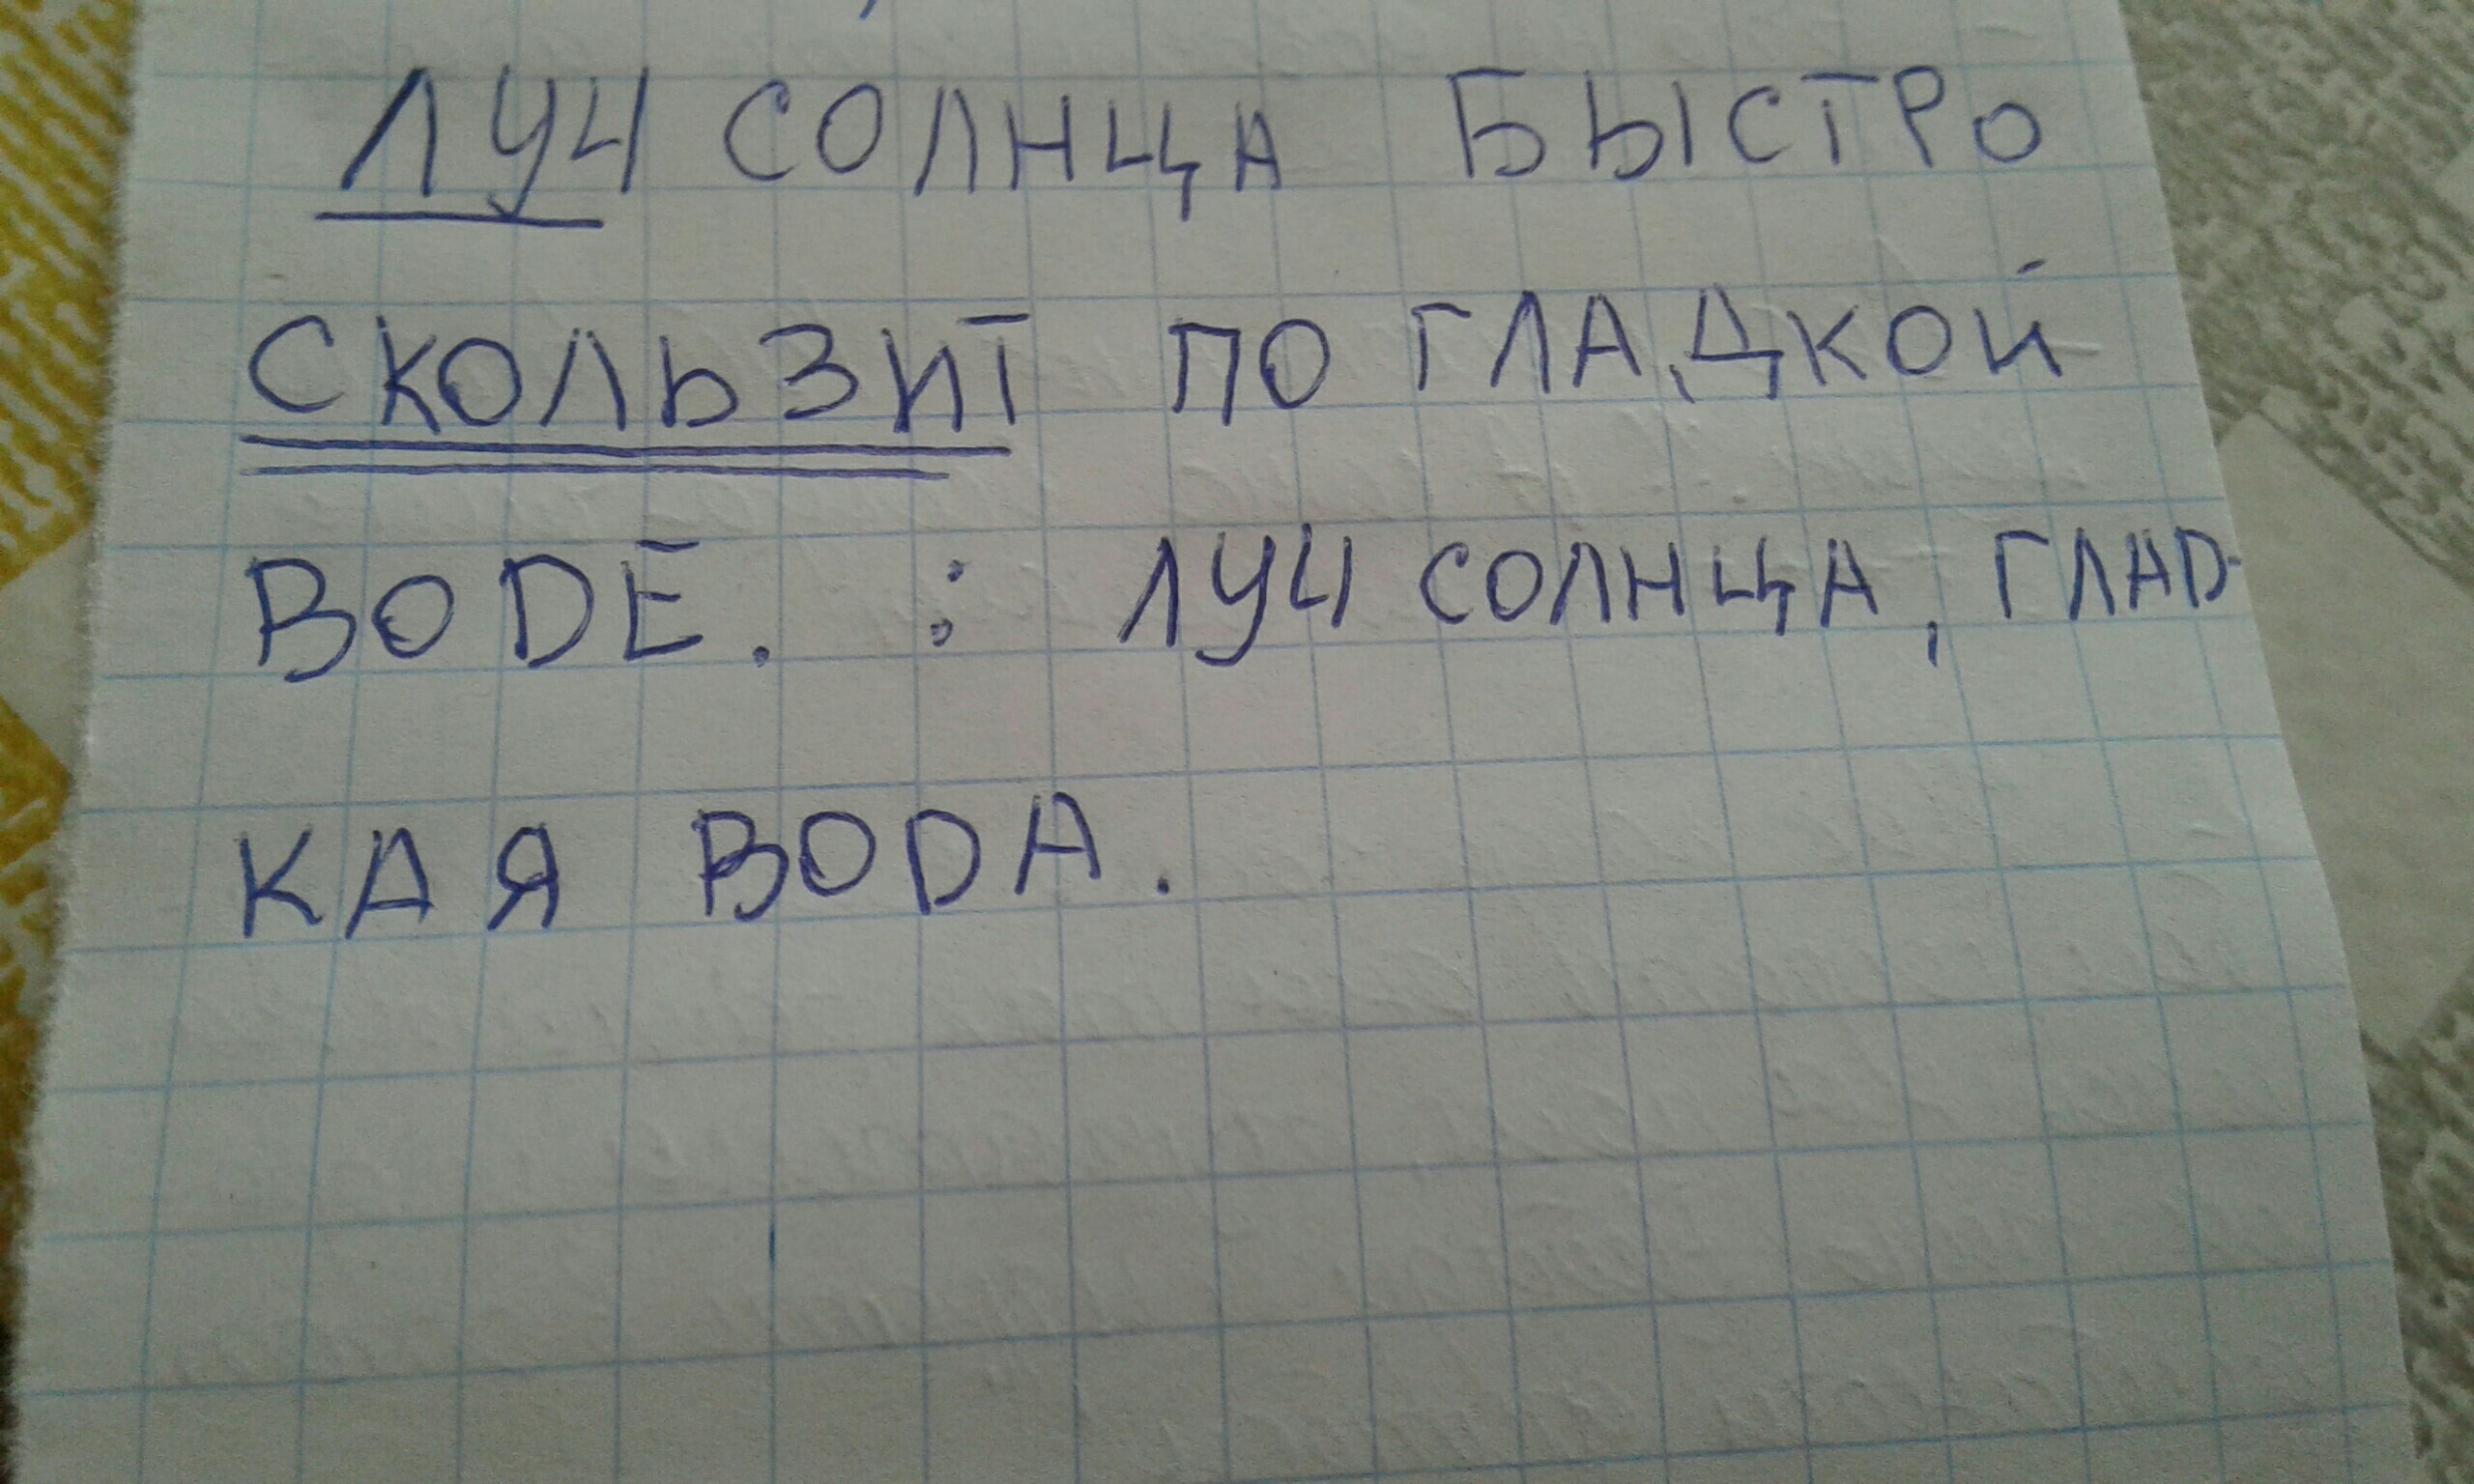 ЛУЧ СОЛНЦА БЫСТРО
СКОЛЬЗИТ ПО ГЛАДКОЙ
ВОDЕ. : ЛУЧ СОЛНЦА, ГЛАD-
КАЯ ВОDА.